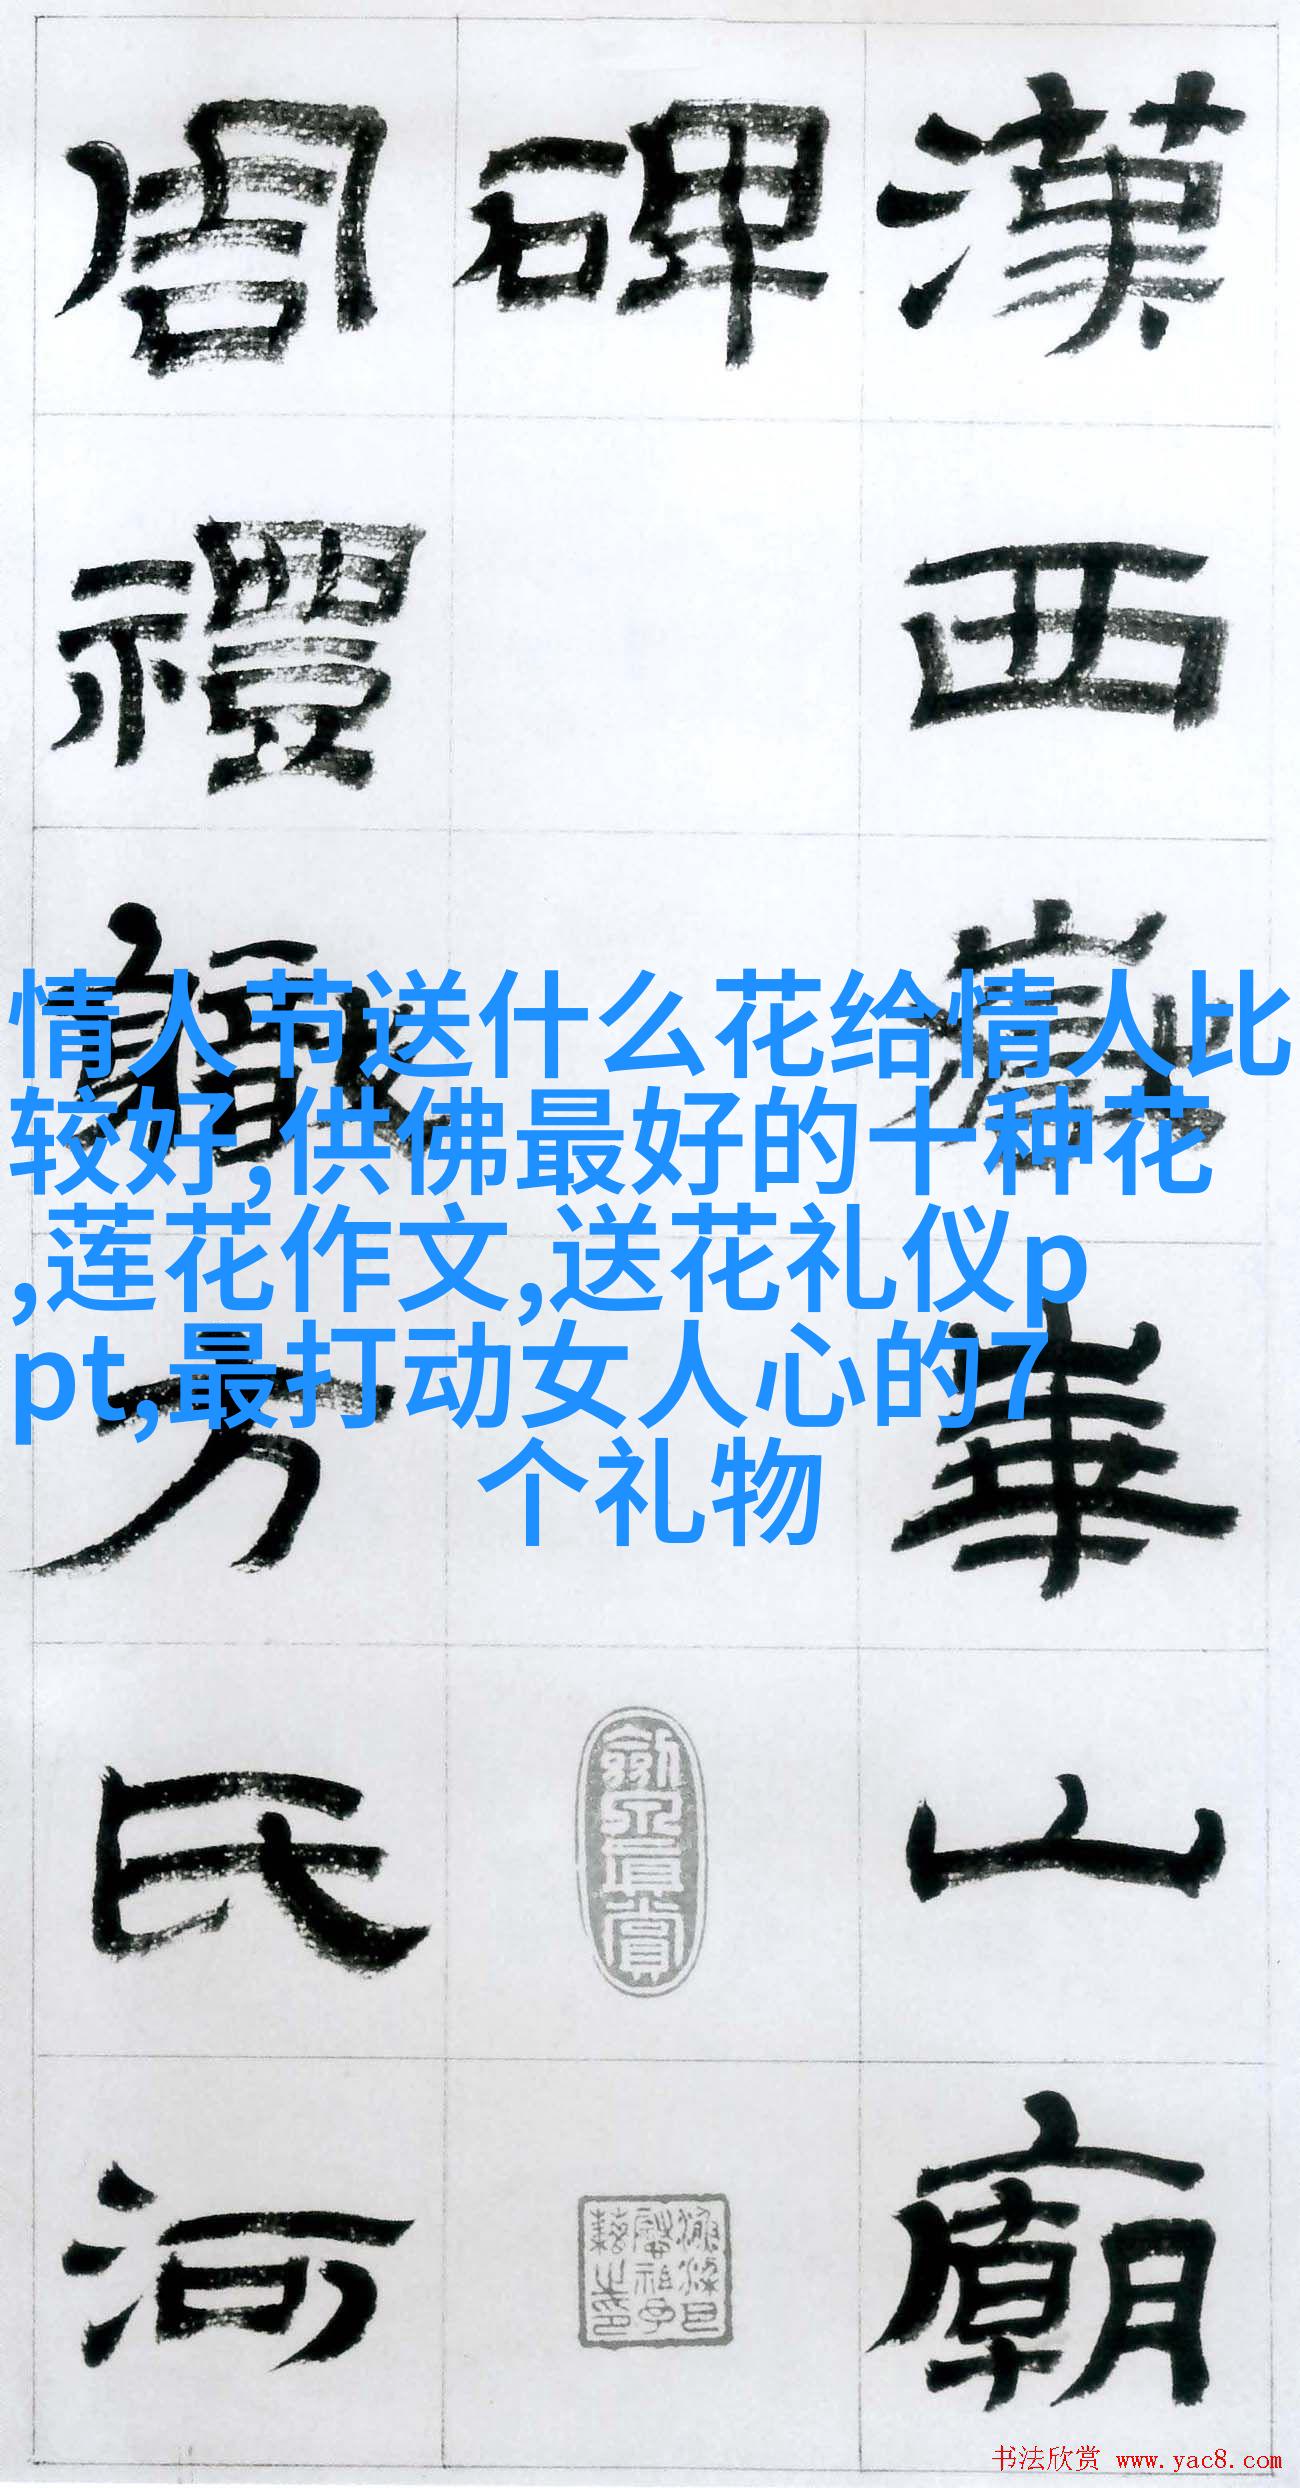 漢西嶽華山廟
碑
周禮職方氏河
情人节送什么花给情人比
较好,供佛最好的十种花
,莲花作文,送花礼仪p
pt,最打动女人心的7
个礼物
书法欣赏 www.yac8.com